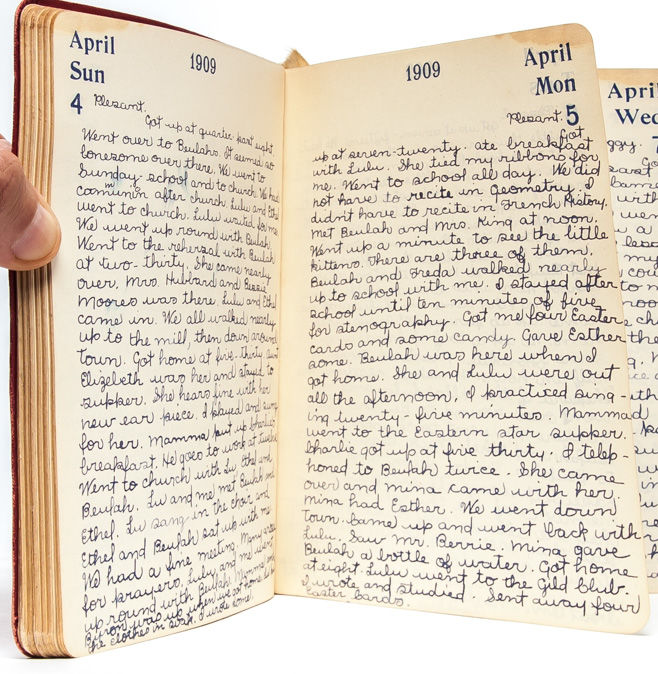 April
Sun
1909
4 Plesant.
Got up at quarter past eight.
Went over to Beulahs. It seemed so
lonesome over there. We went to
Sunday school and to church. We had
communin after church. Lulu and Ethel
went to church. Lulu waited for me.
We went up round with Beulah.
Went to the rehersal with Beulah
at two-thirty. She came nearly
over. Mrs. Hubbard and Bessie
Moores was there. Lulu and Ethel
came in. We all walked nearly
up to the mill, then down around
town. Got home at five-thirty. Aunt
Elizebeth was her and stayed to
supper. She hears fine with her
new ear piece. I played and sung
for her. Mamma put up Charlies
breakfast. He goes to work at twelve
Went to church with Lu Ethel and
Beulah. Lu and me met Beulah and
Ethel. Lu sang in the choir and
Ethel and Beulah sat up with me.
We had a fine meeting. Many rose
for prayers. Lulu and me went
up round with Beulah.
Byron was up when we got home.
the clothes in soak. I wrote some.
April
Mon
1909
Plesant. 5
Got
up at seven-twenty. ate breakfast
with Lulu. She tied my ribbons for
me. Went to school all day. We did
not have to recite in Geometry. I
didn't have to recite in French History.
Met Beulah and Mrs. King at noon.
Went up a minute to see the little
kittens. There are three of them.
Beulah and Freda walked nearly
up to school with me. I stayed after
school until ten minutes of five
for stenography. Got me four Easter
cards and some candy. Gave Esther
some. Beulah was here when I
got home. She and Lulu were out
all the afternoon. I practiced sing-
ing twenty-five minutes. Mammad
went to the Eastern star supper.
Charlie got up at five thirty. I telep-
honed to Beulah twice. She came
over and mina came with her.
Mina had Esther. We went down
Town. Came up and went back with
Lulu. Saw Mr. Berrie. Mina gave
Beulah a bottle of water. Got home
at eight. Lulu went to the Gild Club.
I wrote and studied. Sent away four
Easter Cards.